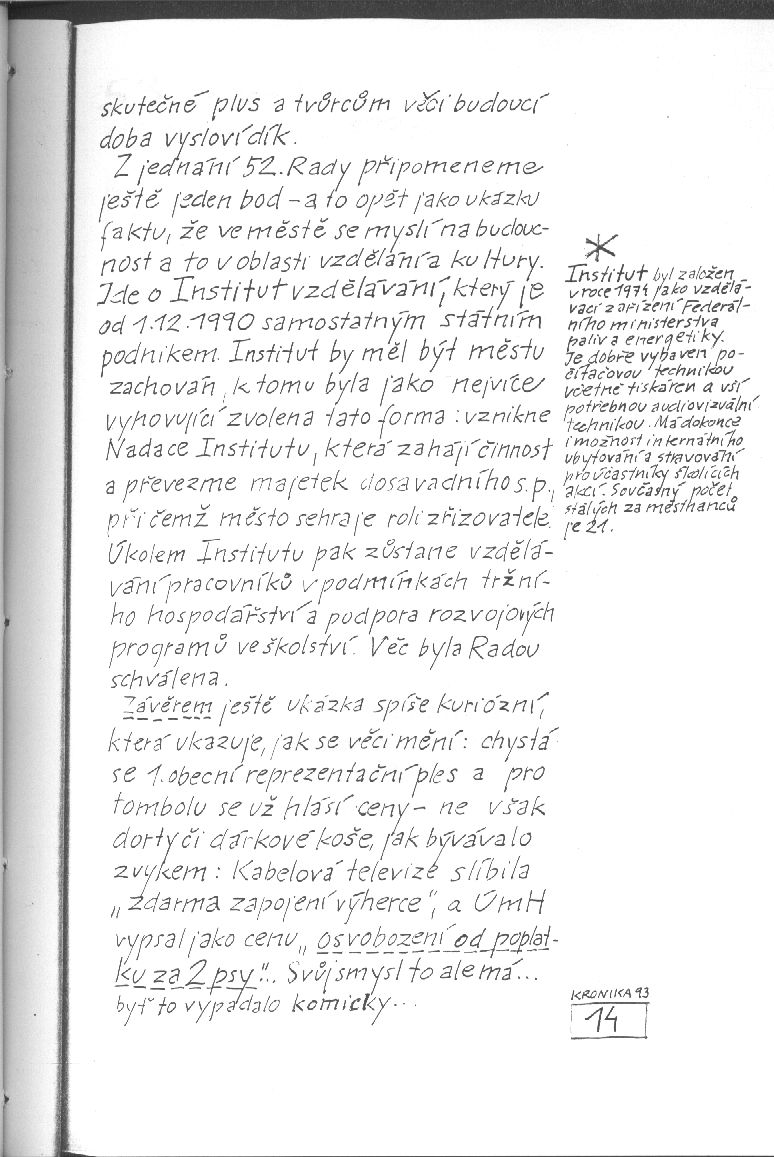 skutečné plus a tvůrcům věci budoucí
doba vysloví dík.
Z jednání 52. Rady připomeneme
ještě jeden bod – a to opět jako ukázku
faktu, že ve městě se myslí na budouc-
nost a to v oblasti vzdělání a kultury.
Jde o Institut vzdělávání, který je
od 1.12.1990 samostatným státním
podnikem. Institut by měl být městu
zachován, k tomu byla jako nejvíce
vyhovující zvolena tato forma: vznikne
Nadace Institutu, která zahájí činnost
a převezme majetek dosavadního s.p.,
přičemž město sehraje roli zřizovatele.
Úkolem Institutu pak zůstane vzdělá-
vání pracovníků v podmínkách tržní-
ho hospodářství a podpora rozvojových
programů ve školství. Věc byla Radou
schválena.
Závěrem ještě ukázka spíše kuriózní,
která ukazuje, jak se věci mění: chystá
se 1. obecní reprezentační ples a pro
tombolu se už hlásí ceny – ne však
dorty či dárkové koše, jak bývávalo
zvykem: Kabelová televize slíbila
„zdarma zapojení výherce", a ÚmH
vypsal jako cenu „osvobození od poplat-
ku za 2 psy"... Svůj smysl to ale má...
byť to vypadalo komicky...
*
Institut byl založen
v roce 1974 jako vzdělá-
vací zařízení Federál-
ního ministerstva
paliv a energetiky.
Je dobře vybaven po-
čítačovou technikou
včetně tiskáren a vší
potřebnou audiovizuální
technikou. Má dokonce
i možnost internátního
ubytování a stravování
pro účastníky školících
akcí. Současný počet
stálých zaměstnanců
je 21.
KRONIKA 93
14